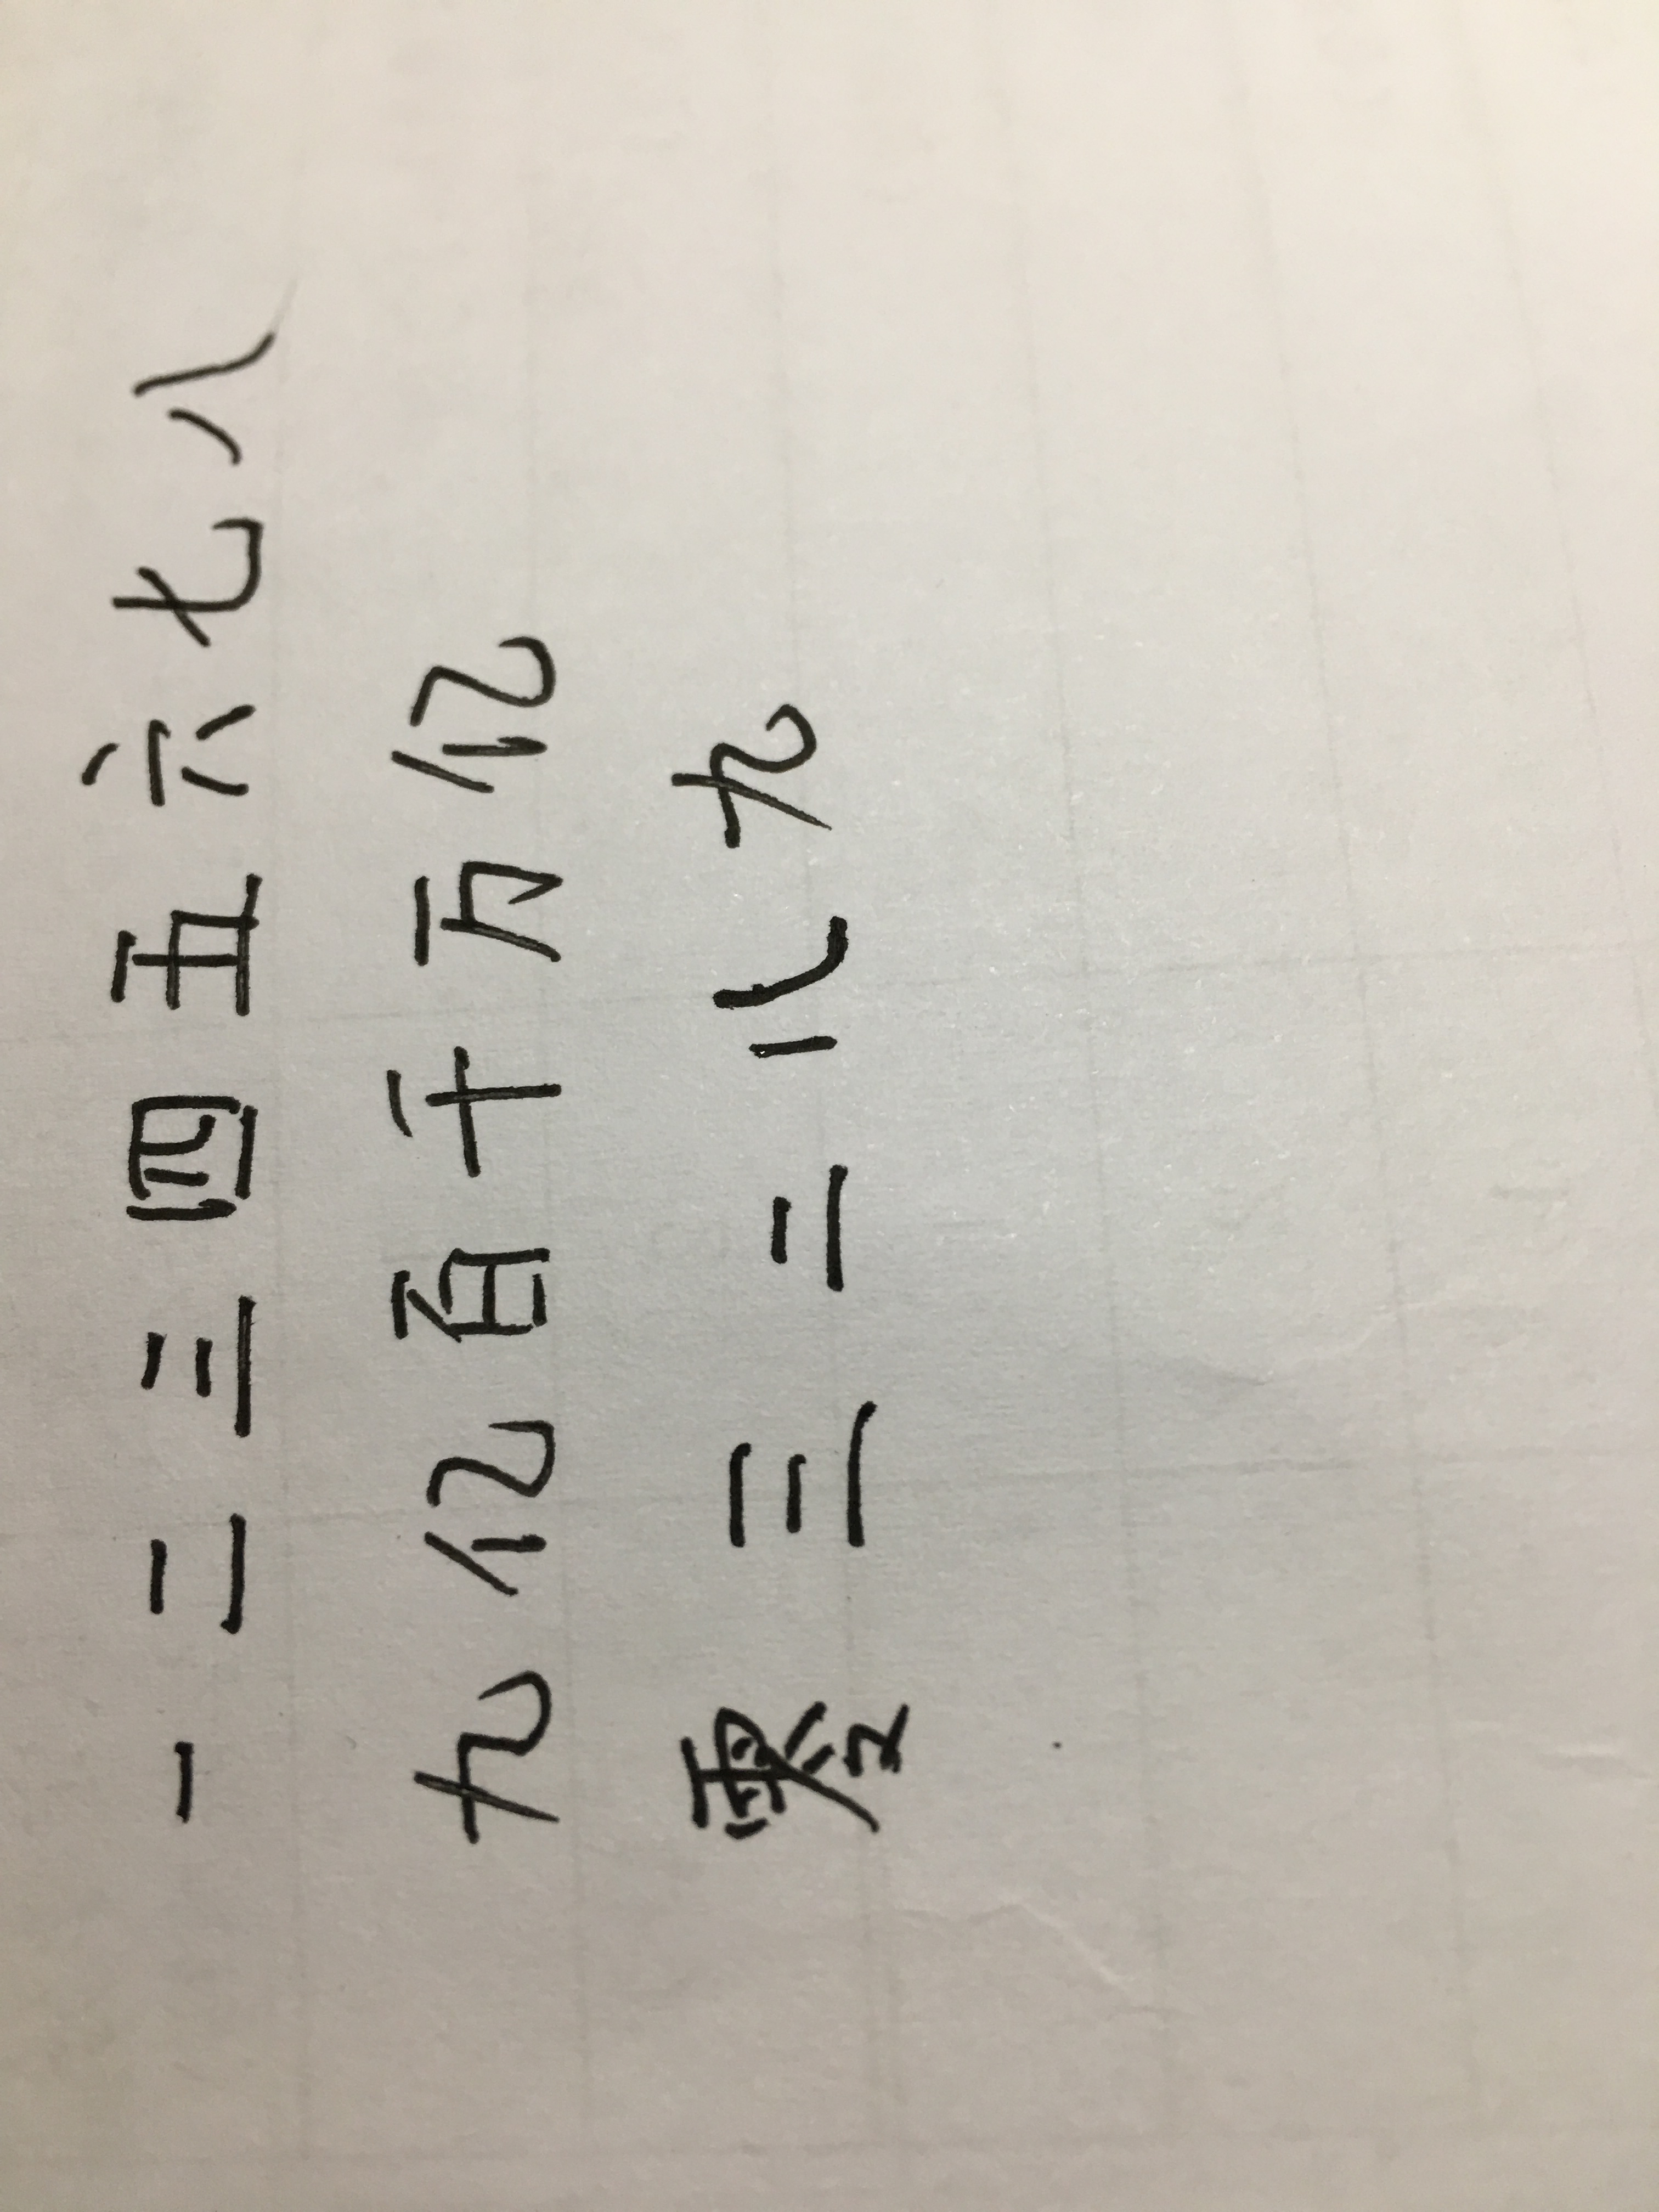 一二三四五六七八
九亿百千万亿
零三二八九